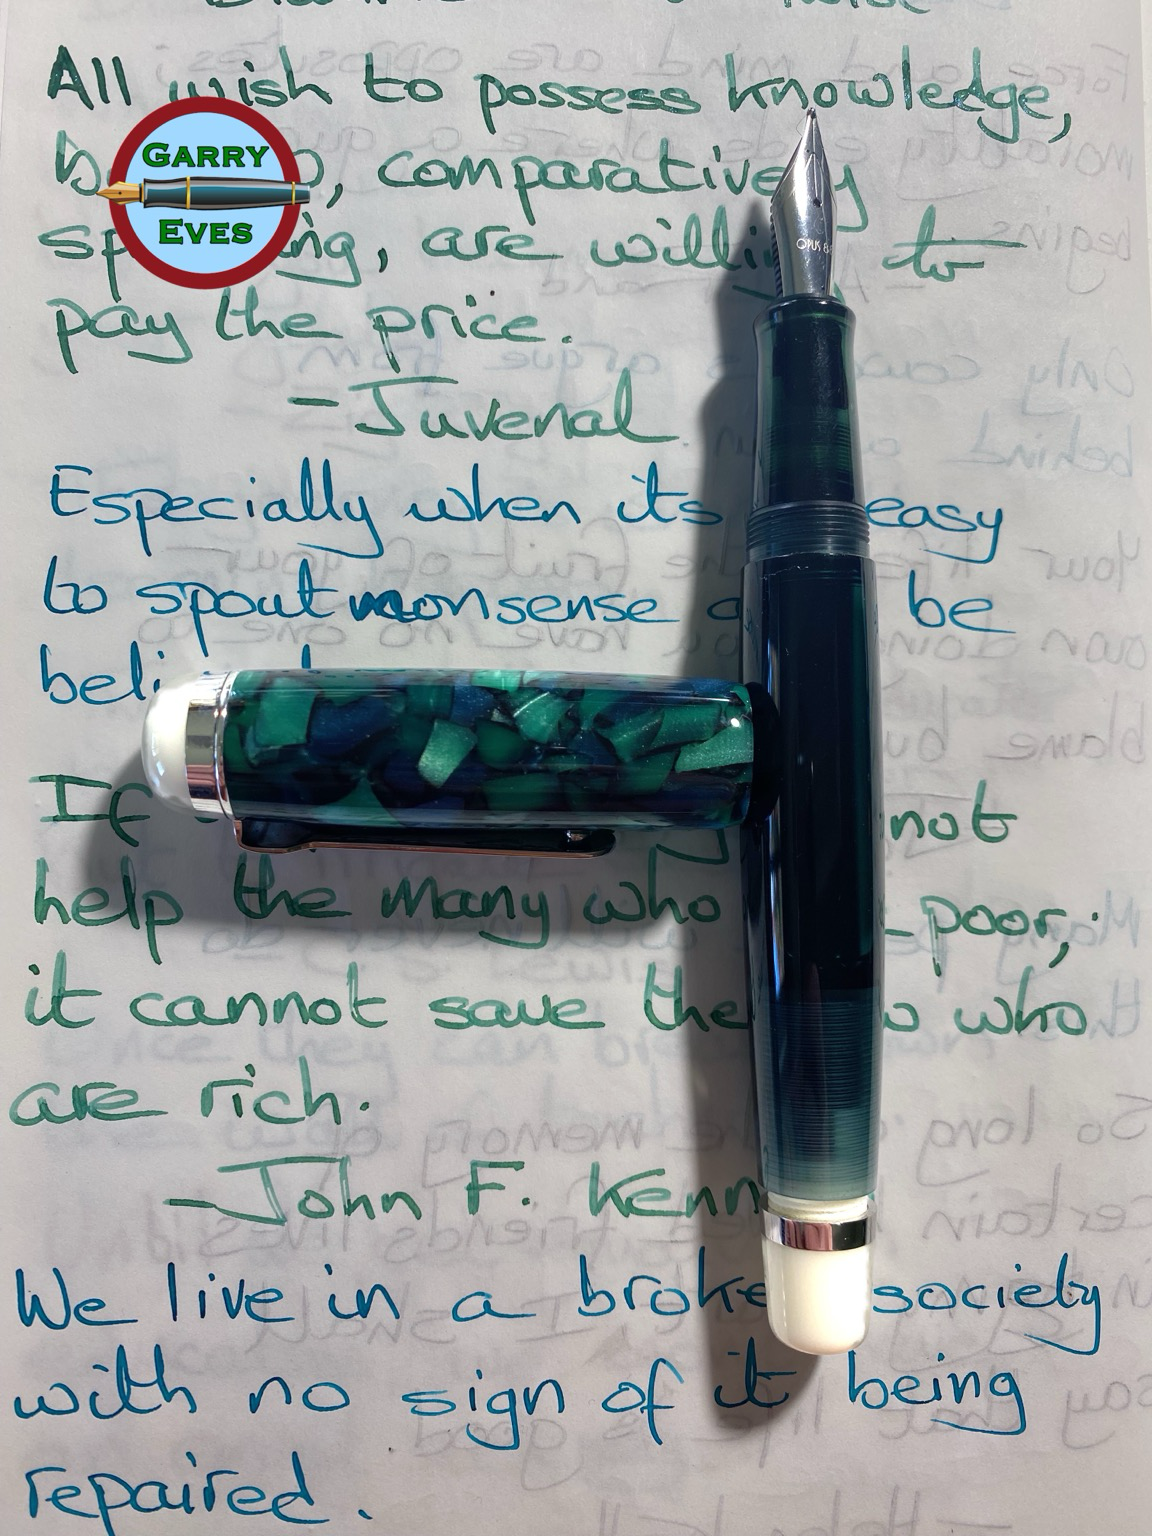 All wish to possess knowledge,
GARRY
EVES
comparatively
are willing to
pay the price.
- Juvenal
Especially when its easy
to spout nonsense be
OPUS 88
If not
help the many who poor,
it cannot save the who
are rich.
- John F.
We live in a broken society
with no sign of it being
repaired.